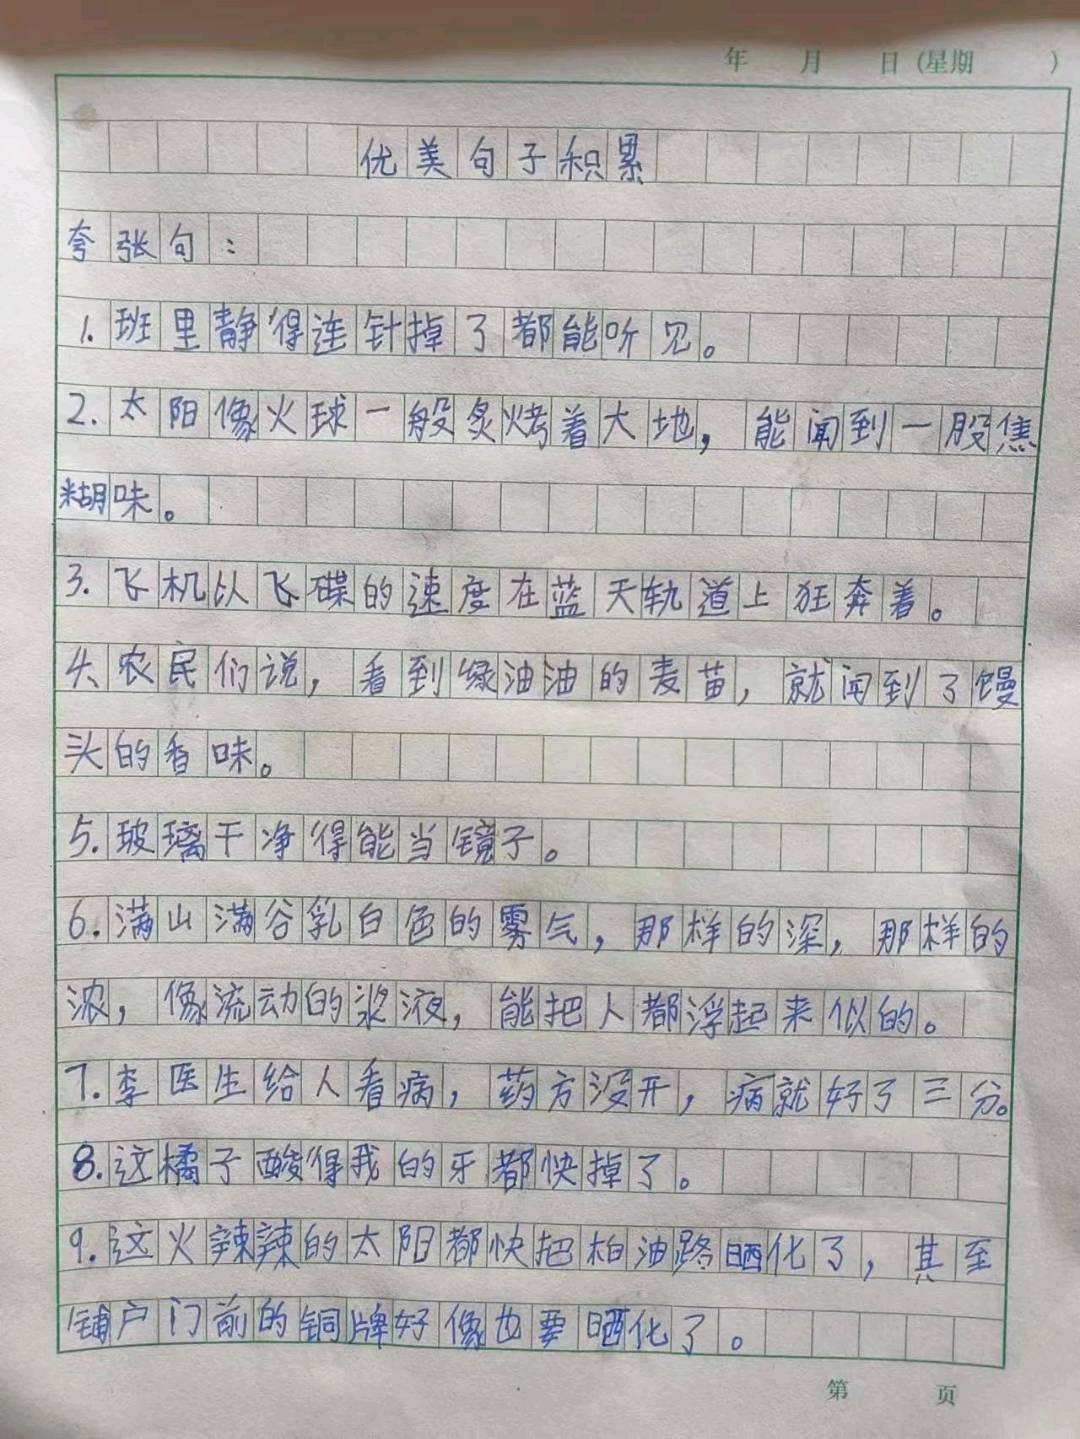 年 月 日 (星期 )
优美句子积累
夸张句：
1.班里静得连针掉了都能听见。
2.太阳像火球一般炙烤着大地，能闻到一股焦
糊味。
3.飞机以飞碟的速度在蓝天轨道上狂奔着。
4、农民们说，看到绿油油的麦苗，就闻到了馒
头的香味。
5.玻璃干净得能当镜子。
6.满山满谷乳白色的雾气，那样的深，那样的
浓，像流动的浆液，能把人都浮起来似的。
7.李医生给人看病，药方没开，病就好了三分。
8.这橘子酸得我的牙都快掉了。
9.这火辣辣的太阳都快把柏油路晒化了，其至
铺户门前的铜牌好像也要晒化了。
第 页